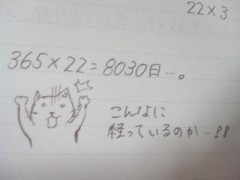 22×3
365×22=8030日…。
こんなに
経っているのか…!!